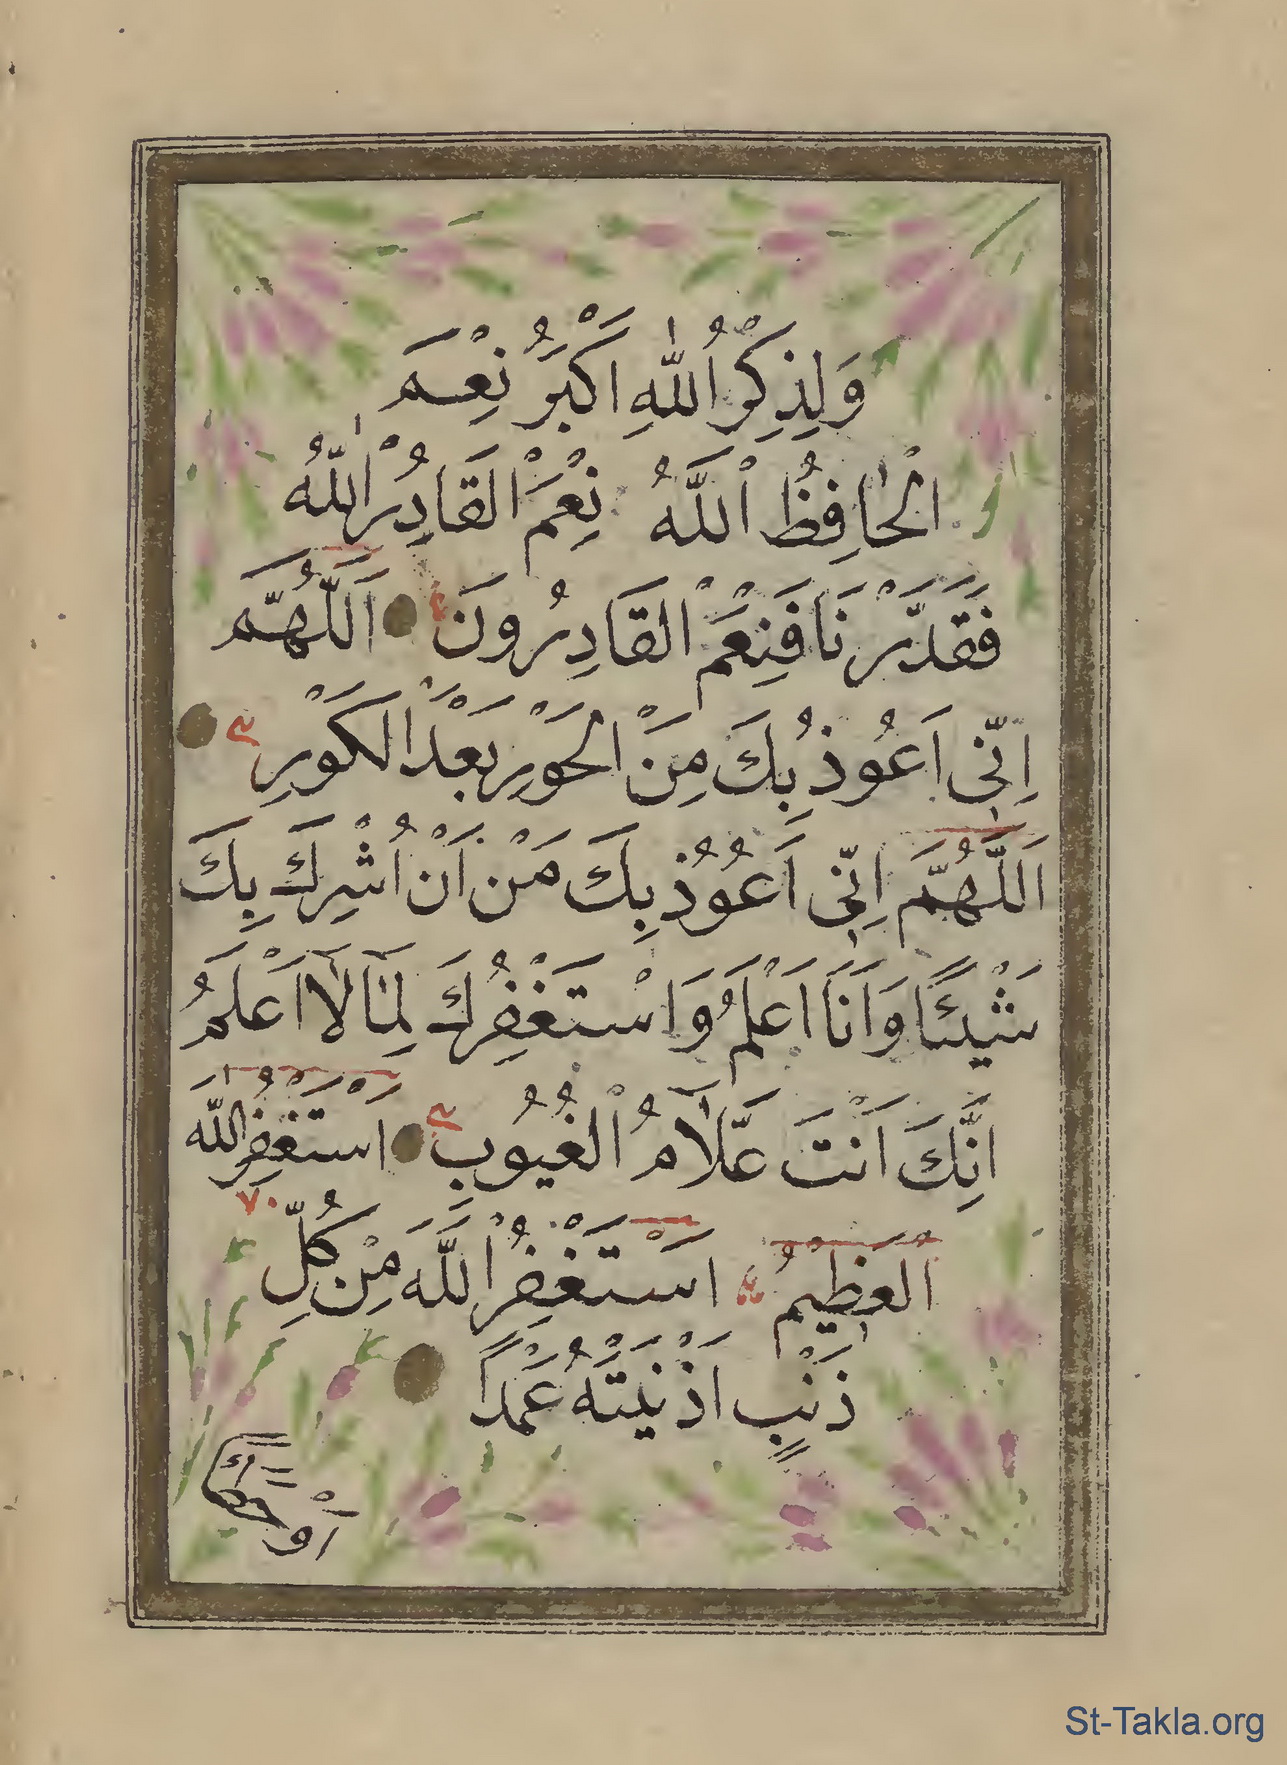 وَلِذِكْرُ اللّٰهِ اَكْبَرُ نِعْمَ
الْحَافِظُ اللَّهُ نِعْمَ الْقَادِرُ اللّٰهُ
فَقَدَّرْنَا فَنِعْمَ الْقَادِرُونَ ٤ اَللّٰهُمَّ
اِنّٖى اَعُوذُ بِكَ مِنَ الْحَوْرِ بَعْدَ الْكَوْرِ ٣
اَللّٰهُمَّ اِنّٖى اَعُوذُ بِكَ مَنْ اَنْ اُشْرِكَ بِكَ
شَيْئًا وَاَنَا اَعْلَمُ وَاَسْتَغْفِرُكَ لِمَا لَا اَعْلَمُ
اِنَّكَ اَنْتَ عَلَّامُ الْغُيُوبِ ٣ اَسْتَغْفِرُ اللّٰهَ
٧٠
الْعَظٖيمُ اَسْتَغْفِرُ اللَّهَ مِنْ كُلِّ
ذَنْبٍ اَذْنَبْتُهُ عَمْدًا
اَوْ خَطَأً
St-Takla.org